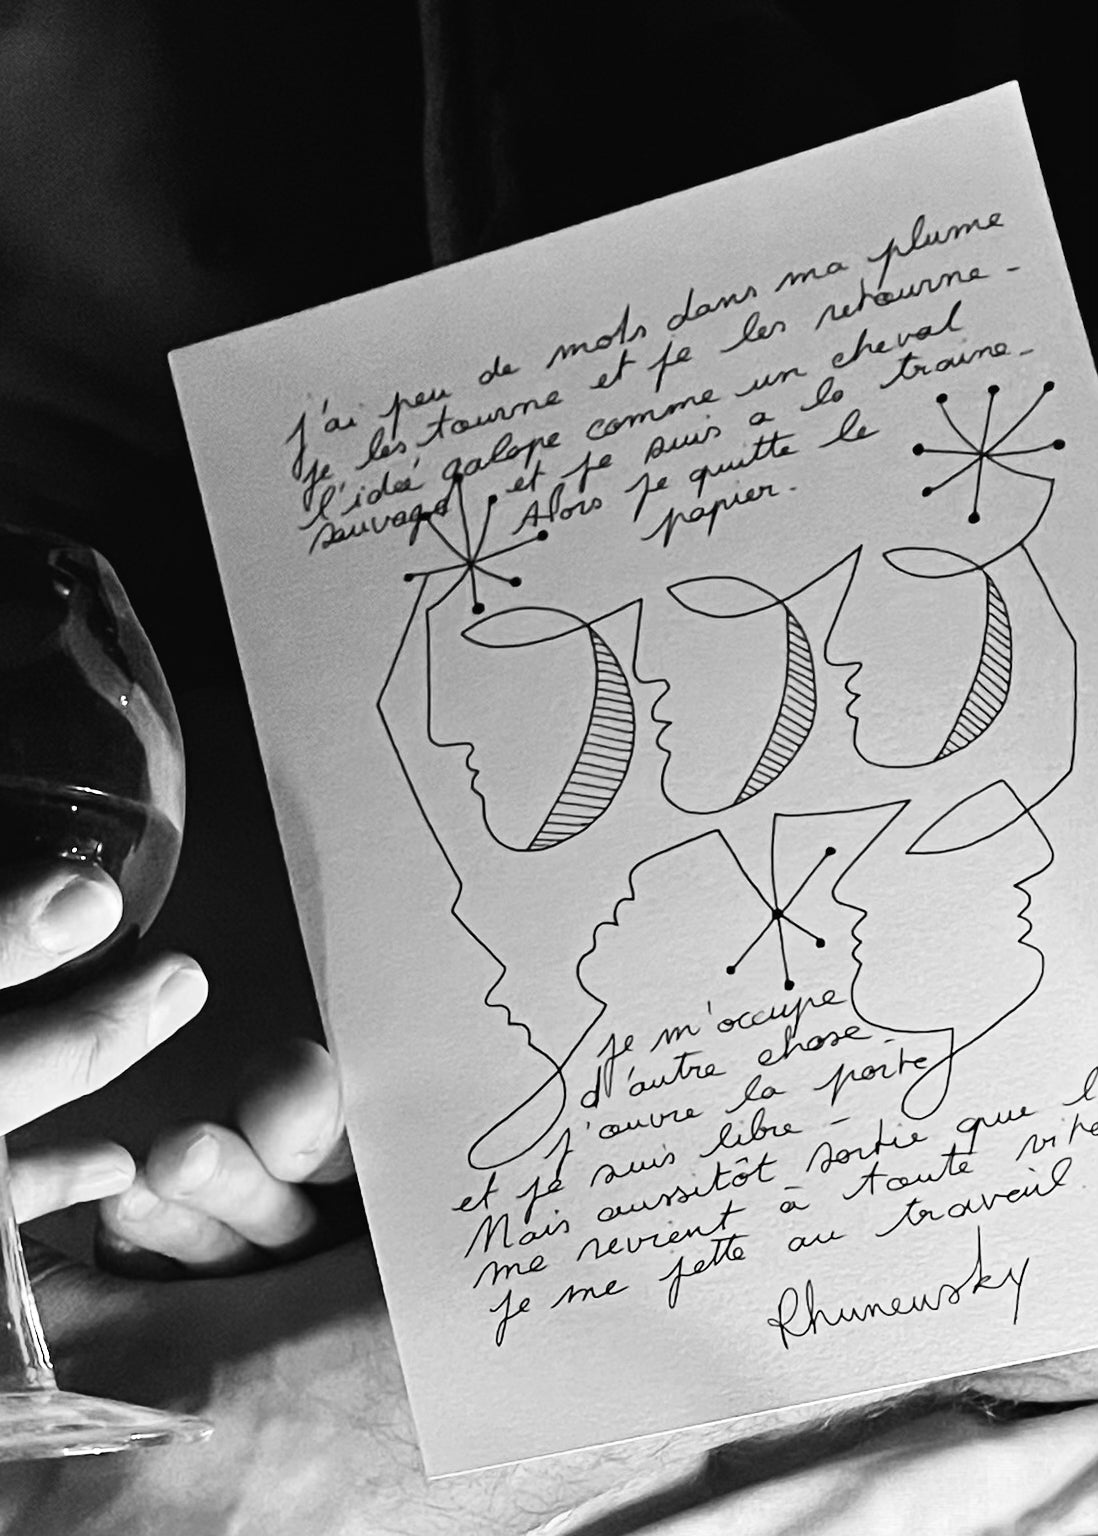 j'ai peu de mots dans ma plume
je les tourne et je les retourne -
l'idée galope comme un cheval
sauvage et je suis a la traine -
Alors je quitte le
papier.
je m'occupe
d'autre chose -
j'ouvre la porte
et je suis libre -
Mais aussitôt sortie que
me revient à toute vite
je me jette au travail.
Rhunewsky